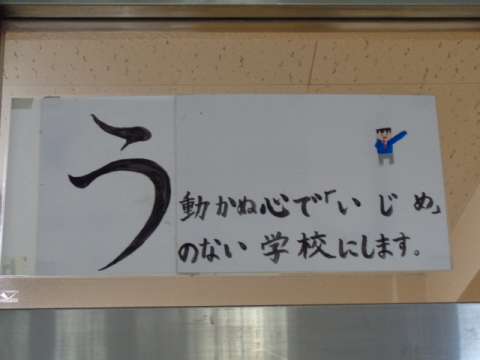 う
動かぬ心で「いじめ」
のない学校にします。